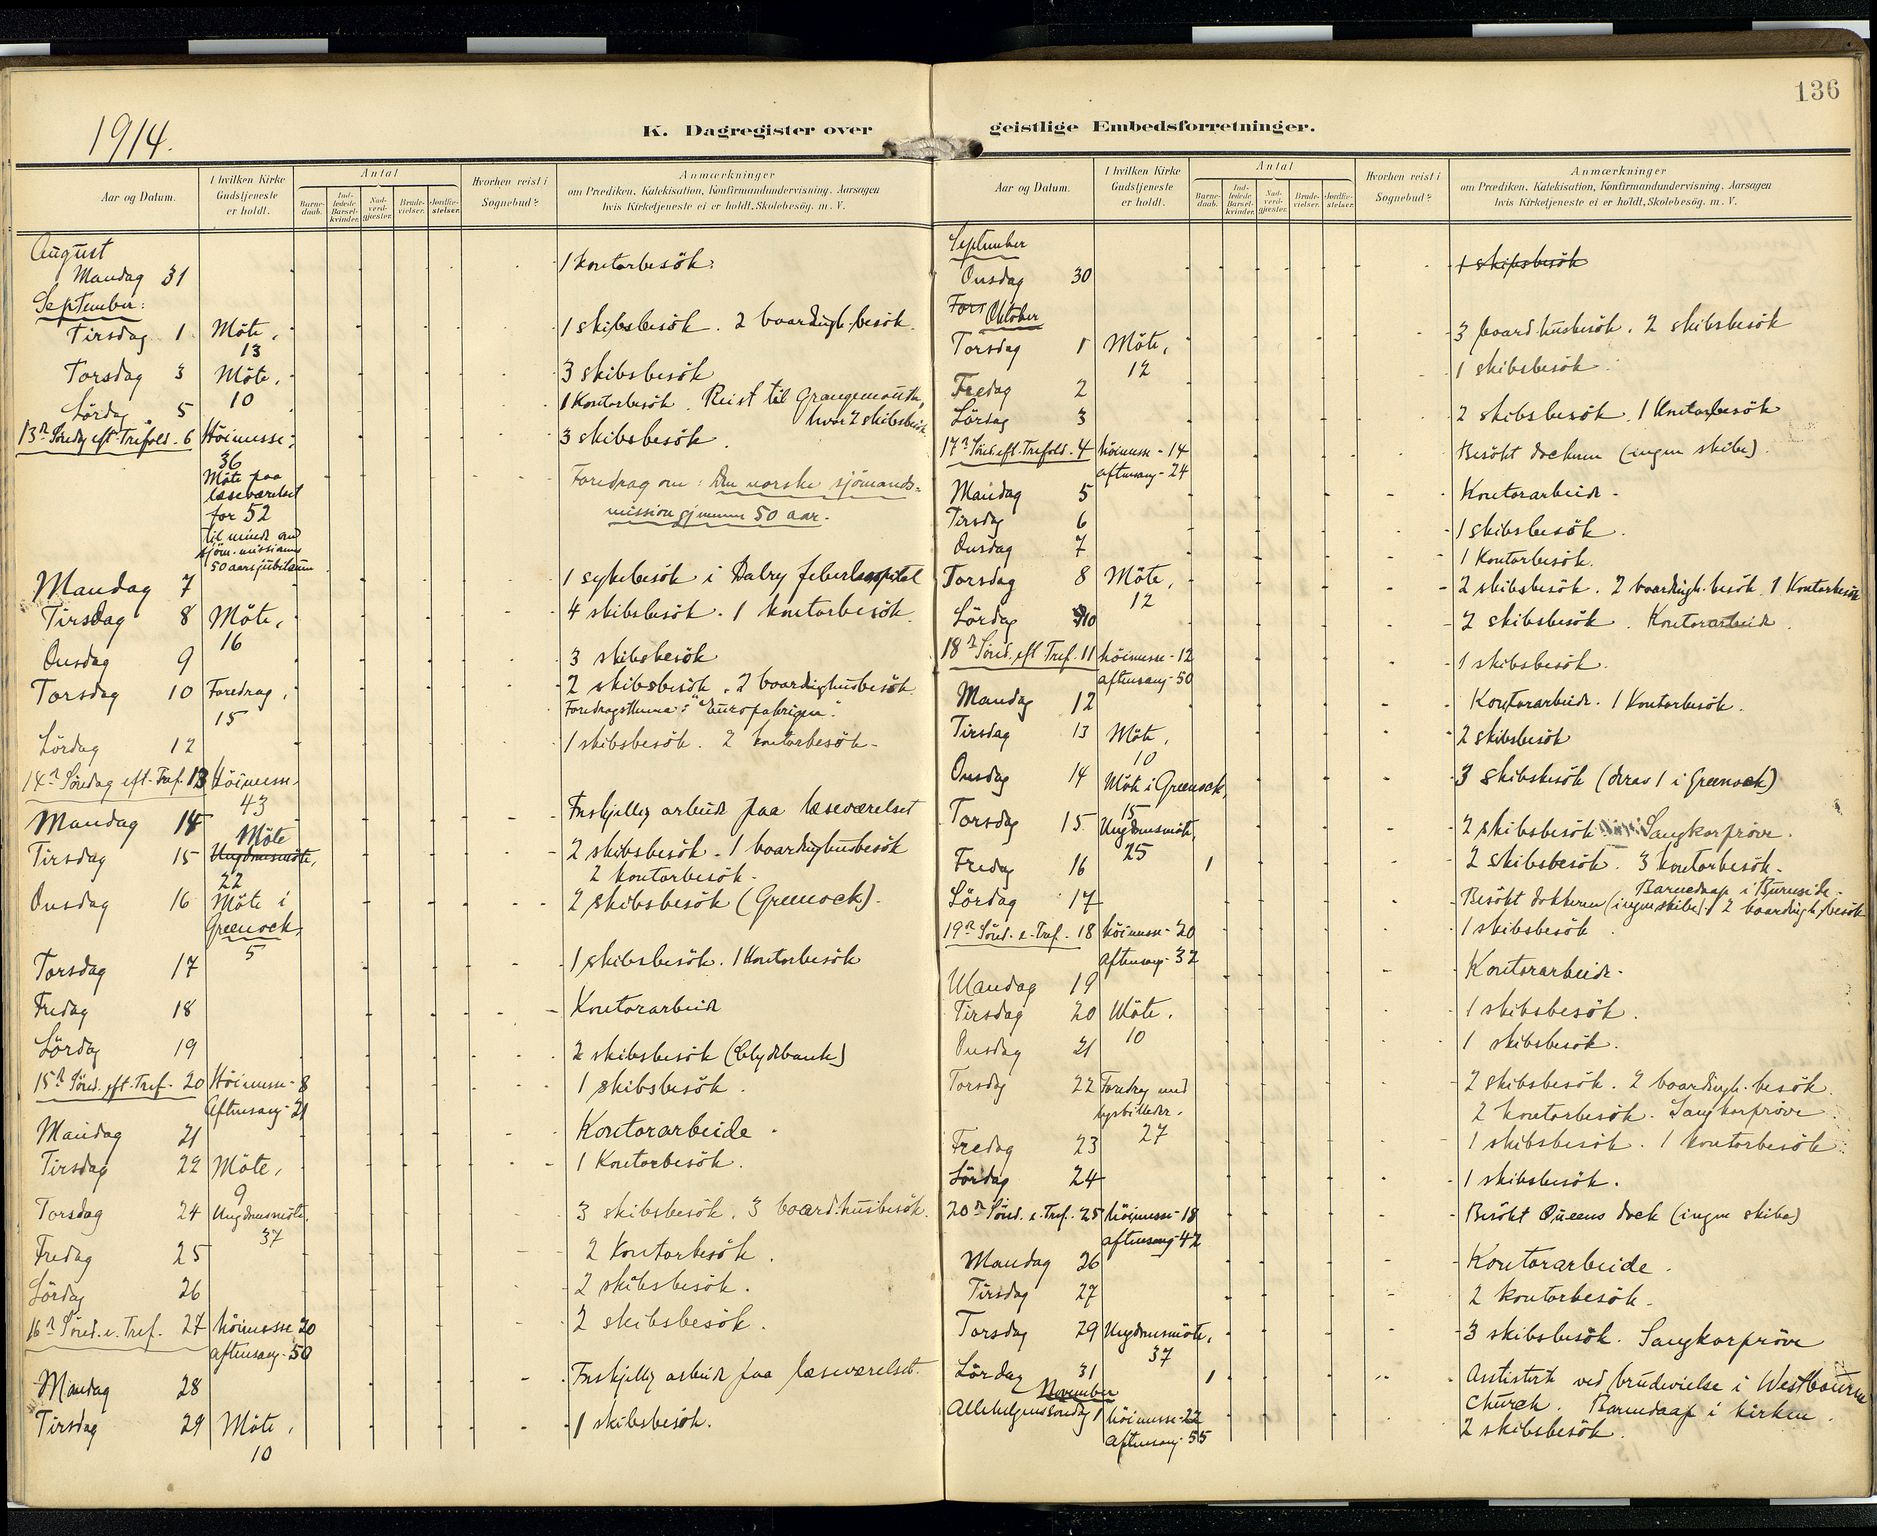 136
1914.
K. Dagregister over
Aar og Datum.
I hvilken Kirke Gudstjeneste er holdt.
Antal
Barne-daab.
Ind-ledede Barsel-kvinder.
Nad-verd-gjester.
Brude-vielser.
Jordfæ-stelser.
Hvorhen reist i Sognebud?
Anmærkninger
om Prædiken, Katekisation, Konfirmandundervisning, Aarsagen
hvis Kirketjeneste ei er holdt, Skolebesøg. m. V.
August
Mandag 31 1 kontorbesök.
September:
Tirsdag 1 Möte, 1 skibsbesök. 2 boardingh. besök.
13
Torsdag 3 Möte. 3 skibsbesök
10
Lördag 5 1 Kontorbesök. Reist til Grangemouth,
hvor 2 skibsbesök
13n Söndag eft. Trefold. 6 Höimesse. 3 skibsbesök.
36
Möte paa Foredrag om: Den norske sjömands-
læseværelset mission gjennem 50 aar.
for 52
til minde om
sjöm. missions
50 aarsjubilæum
Mandag 7 1 sykebesök i Dalry feberhospital
Tirsdag 8 Möte, 4 skibsbesök. 1 kontorbesök.
16
Onsdag 9 3 skibsbesök
Torsdag 10 Foredrag, 2 skibsbesök, 2 boardinghusbesök
15 Foredragsthema: "Europakrigen".
Lördag 12 1 skibsbesök. 2 kontorbesök.
14n Söndag eft. Tref. 13 Höimesse,
43
Mandag 14 Forskjellig arbeide paa læseværelset
Möte
Tirsdag 15 Ungdomsmöte, 2 skibsbesök. 1 boardinghusbesök
22 2 kontorbesök.
Onsdag 16 Möte i 2 skibsbesök (Greenock).
Greenock,
5
Torsdag 17 1 skibsbesök. 1 Kontorbesök
Fredag 18 Kontorarbeide
Lördag 19 2 skibsbesök (Clydebank)
15n Sönd. eft. Tref. 20 Höimesse - 8 1 skibsbesök.
Aftensang - 21
Mandag 21 Kontorarbeide.
Tirsdag 22 Möte, 1 Kontorbesök.
9
Torsdag 24 Ungdomsmöte, 3 skibsbesök. 3 board.husbesök.
37
Fredag 25 2 Kontorbesök.
Lördag 26 2 skibsbesök.
16n Sönd. e. Tref. 27 höimesse 20 2 skibsbesök.
aftensang - 50
Mandag 28 Forskjellig arbeide paa læseværelset.
Tirsdag 29 Möte, 1 skibsbesök.
10
geistlige Embedsforretninger.
Aar og Datum.
I hvilken Kirke Gudstjeneste er holdt.
Antal
Barne-daab.
Ind-ledede Barsel-kvinder.
Nad-verd-gjester.
Brude-vielser.
Jordfæ-stelser.
Hvorhen reist i Sognebud?
Anmærkninger
om Prædiken, Katekisation, Konfirmandundervisning, Aarsagen
hvis Kirketjeneste ei er holdt, Skolebesøg. m. V.
September
Onsdag 30 1 skibsbesök
Tors Oktober
Torsdag 1 Möte, 3 board.husbesök. 2 skibsbesök
12
Fredag 2 1 skibsbesök.
Lördag 3 2 skibsbesök. 1 Kontorbesök
17n Sönd. eft. Trefold. 4 höimesse - 14 Besökt dockene (ingen skibe).
aftensang - 24
Mandag 5 Kontorarbeide.
Tirsdag 6 1 skibsbesök.
Onsdag 7 1 Kontorbesök.
Torsdag 8 Möte, 2 skibsbesök. 2 boardingh. besök. 1 Kontorbesök
12
Lördag 10 2 skibsbesök. Kontorarbeide.
18n Sönd. eft Tref. 11 höimesse - 12 1 skibsbesök.
aftensang - 50
Mandag 12 Kontorarbeide. 1 Kontorbesök.
Tirsdag 13 Möte, 2 skibsbesök
10
Onsdag 14 Möte i Greenock, 3 skibsbesök (derav 1 i Greenock)
15
Torsdag 15 Ungdomsmöte, 2 skibsbesök Sangkorpröve.
25
Fredag 16 1 2 skibsbesök. 3 kontorbesök.
Barnedaap i Burnside.
Lördag 17 Besökt dokkerne (ingen skibe). 2 boardingh. besök
19n Sönd. e. Tref. 18 höimesse - 20 1 skibsbesök.
aftensang - 32
Mandag 19 Kontorarbeide.
Tirsdag 20 Möte. 1 skibsbesök.
10
Onsdag 21 1 skibsbesök.
Torsdag 22 Foredrag med 2 skibsbesök. 2 boardingh. besök.
lysbilleder. 2 kontorbesök. Sangkorpröve.
27
Fredag 23 1 skibsbesök. 1 kontorbesök.
Lördag 24 1 skibsbesök.
20n Sönd. e. Tref. 25 höimesse - 18 Besökt Queens dock (ingen skibe)
aftensang - 42
Mandag 26 Kontorarbeide.
Tirsdag 27 2 kontorbesök.
Torsdag 29 Ungdomsmöte, 3 skibsbesök. Sangkorpröve
37
Lördag 31 1 Assistert ved brudevielse i Westbourne
November Church. Barnedaap i kirken.
Allehelgenssöndag 1 höimesse - 22 2 skibsbesök.
aftensang - 55